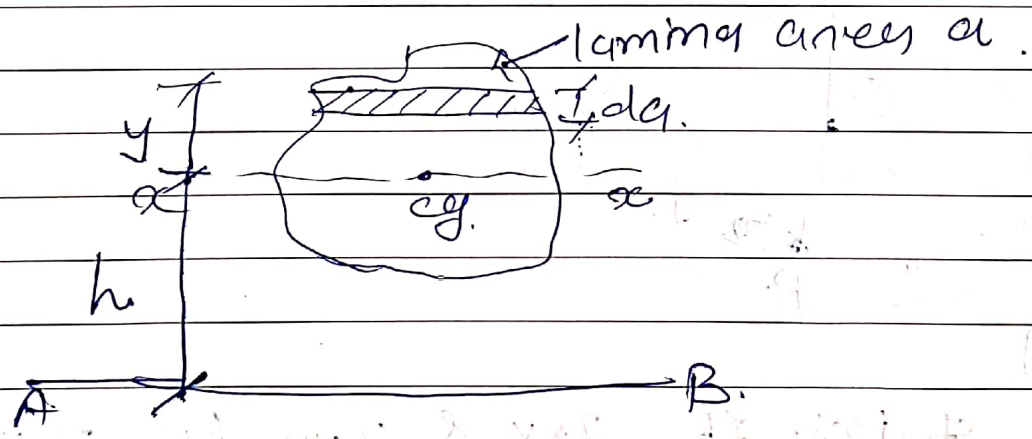 lamina area a.
da.
y
x
cg.
x
h
A
B.